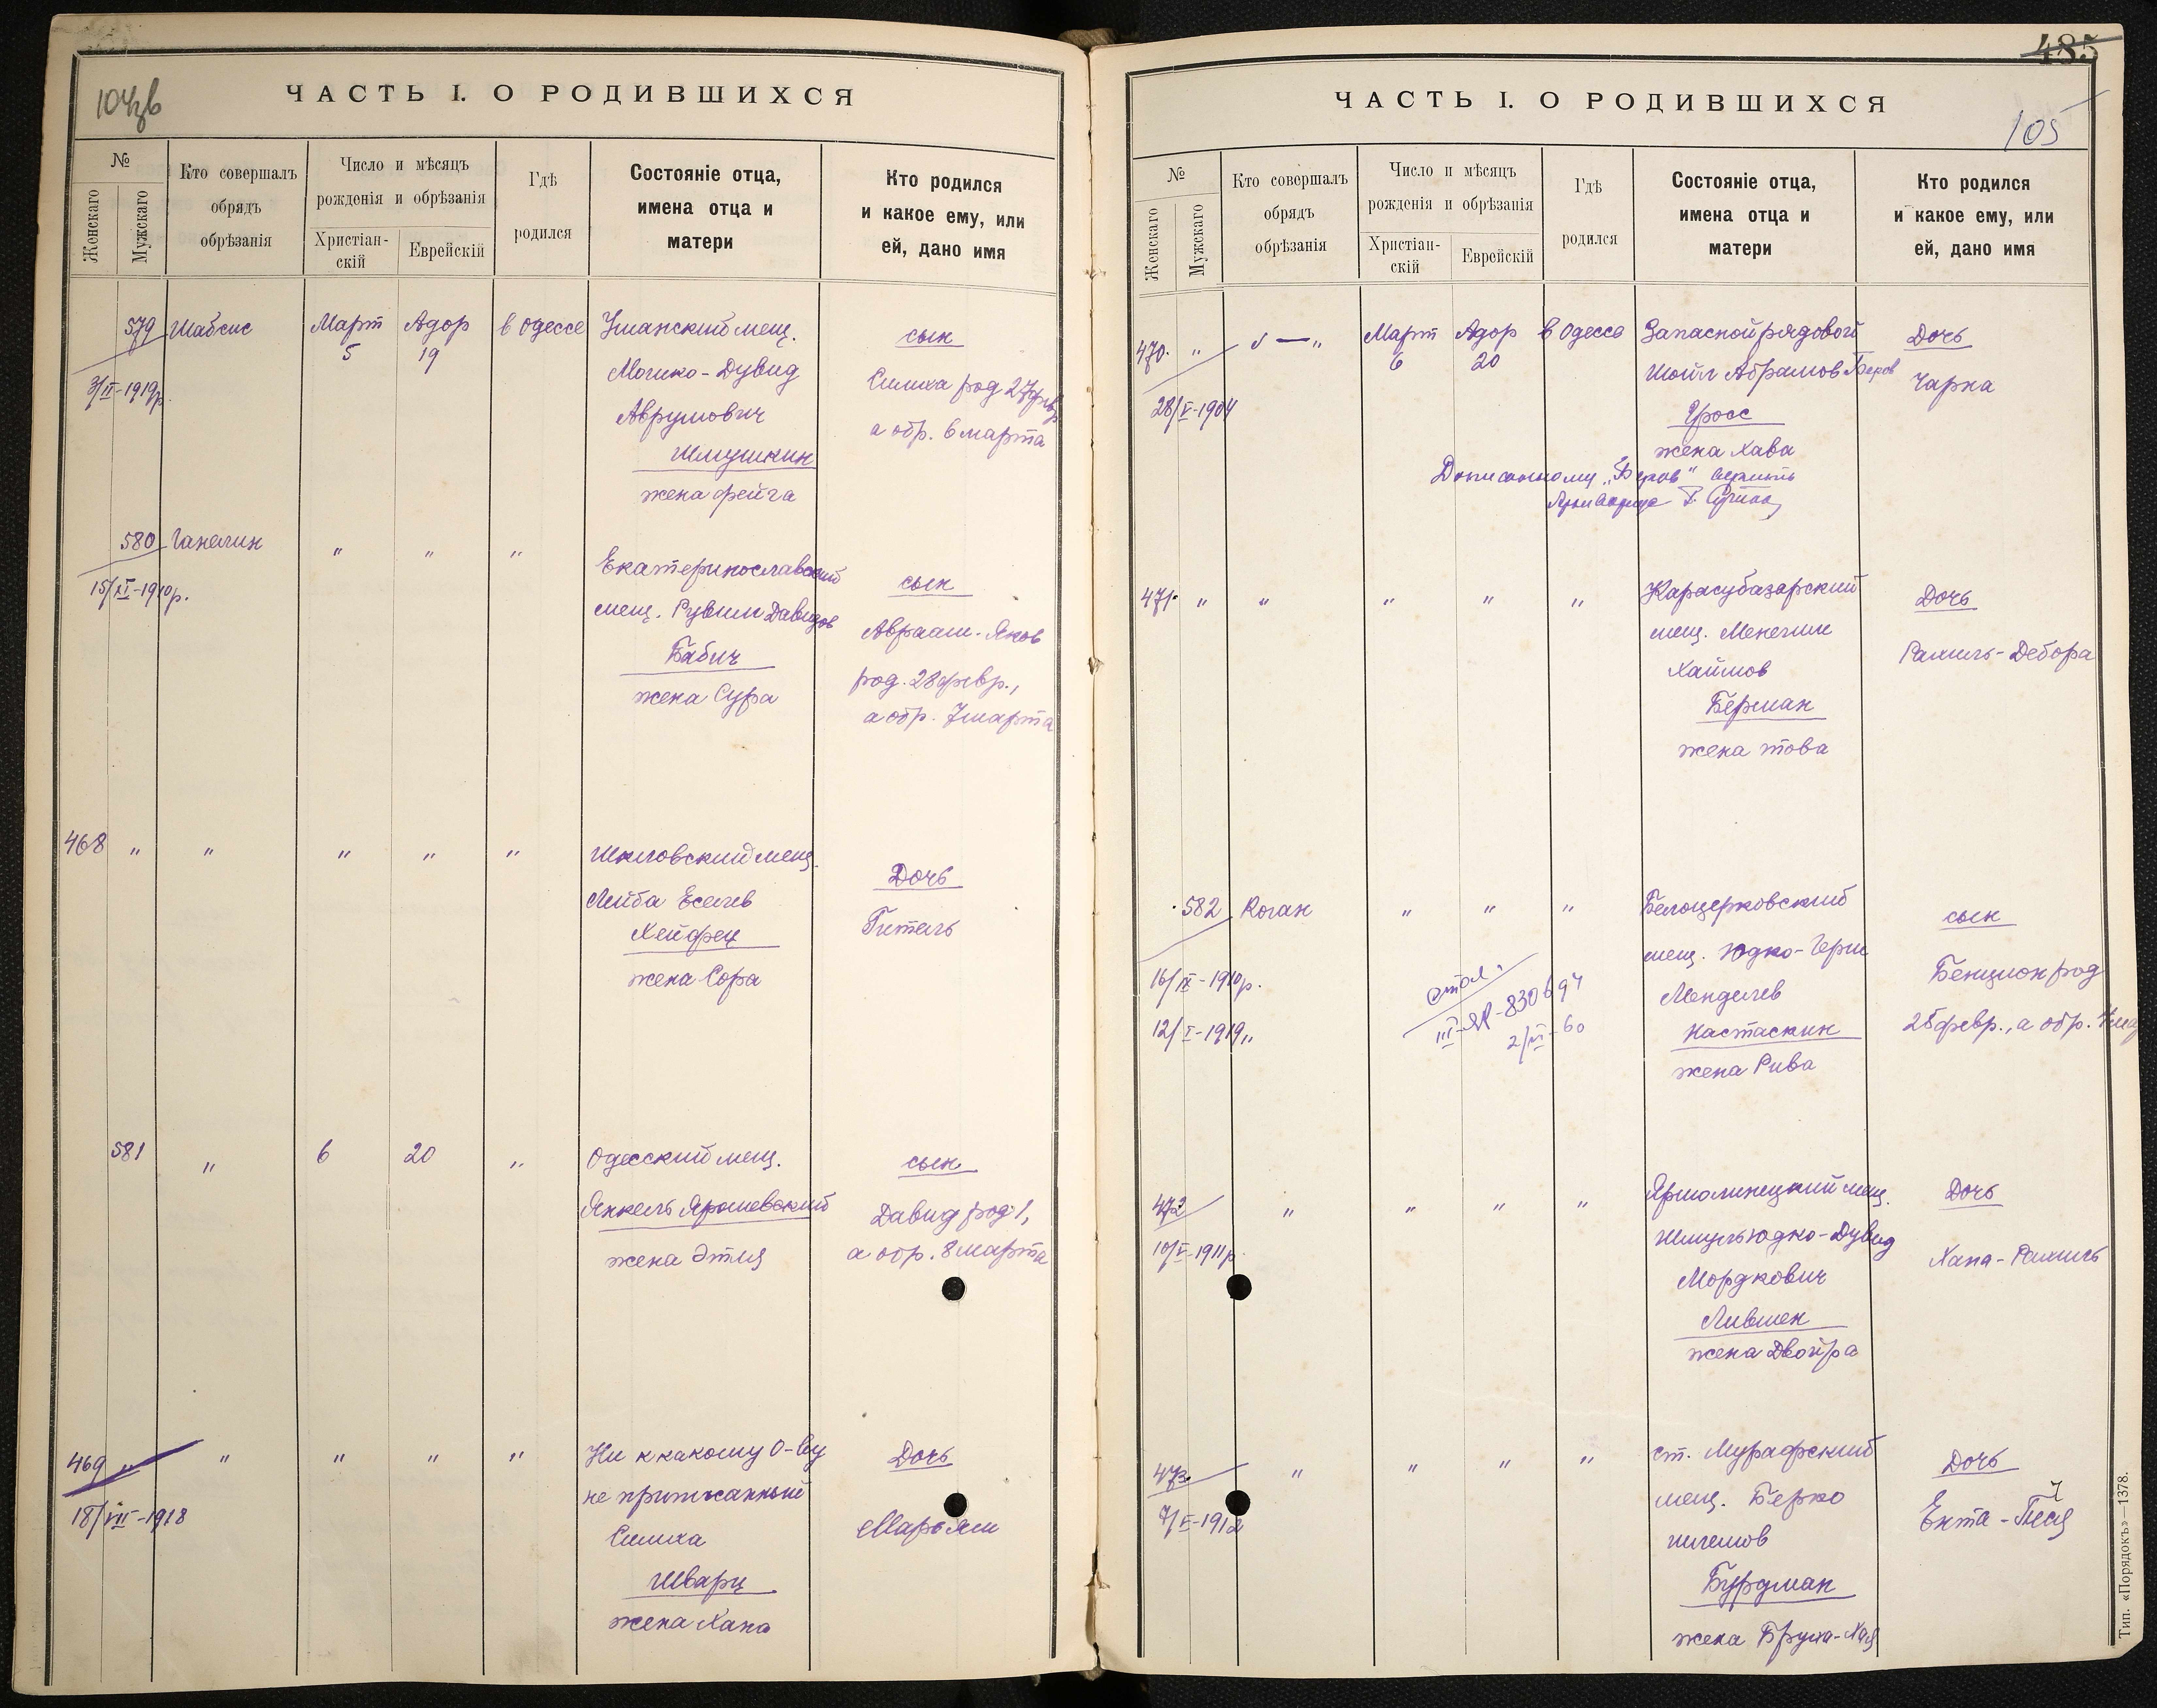 104зв
ЧАСТЬ I. О РОДИВШИХСЯ
№
Женскаго
Мужскаго
Кто совершалъ
обрядъ
обрѣзанія
Число и мѣсяцъ
рожденія и обрѣзанія
Христіан-
скій
Еврейскій
Гдѣ
родился
Состояніе отца,
имена отца и
матери
Кто родился
и какое ему, или
ей, дано имя
579 Шабсис Март Адор в Одессе Уманский мещ.
5 19
3/II-1919р.
Мошко-Дувид
Аврумович
Шмушкин
жена Фейга
сын
Симха род 27 февр
а обр. 6 марта
580 Ганелин " " "
15/XI-1910р.
Екатеринославский
мещ. Рувим Давидов
Бабич
жена Сура
сын
Авраам-Яков
род. 28 февр.,
а обр. 7 марта
468 " " " " " Шкловский мещ.
Лейба Еселев
Хейфец
жена Сора
Дочь
Гитель
581 " 6 20 " Одесский мещ.
Янкель Ярошевский
жена Этля
сын
Давид род 1,
а обр. 8 марта
469 " " " " " Ни к какому о-ву
18/VII-1918
не приписанный
Симха
Шварц
жена Хана
Дочь
Марьям
485
ЧАСТЬ I. О РОДИВШИХСЯ
105
№
Женскаго
Мужскаго
Кто совершалъ
обрядъ
обрѣзанія
Число и мѣсяцъ
рожденія и обрѣзанія
Христіан-
скій
Еврейскій
Гдѣ
родился
Состояніе отца,
имена отца и
матери
Кто родился
и какое ему, или
ей, дано имя
470. " " — " Март Адор в Одессе Запасной рядовой
6 20
28/V-1904
Шойл Абрамов Беров
Гросс
жена Хава
Дописанному „Беров" верить
Дочь
Чарна
471. " " " " " Карасубазарский
мещ. Менехим
Хаимов
Берман
жена Това
Дочь
Рахиль-Дебора
582 Коган " " " Белоцерковский
16/IX-1910р.
12/I-1919 "
III-ЯР-830694
2/VI-60
мещ. Юдко-Герш
Менделев
Настаскин
жена Рива
сын
Бенцион род
28 февр., а обр.
472 " " " " Ярмолинецкий мещ.
10/V-1911р
Шмуль Юдко-Дувид
Мордкович
Лившен
жена Двойра
Дочь
Хана-Рахиль
473. " " " " ст. Мурафский
7/V-1912
мещ. Берко
Бурдман
жена Бруха-Хая
Дочь
Ента-
Тип. «Порядокъ»—1378.